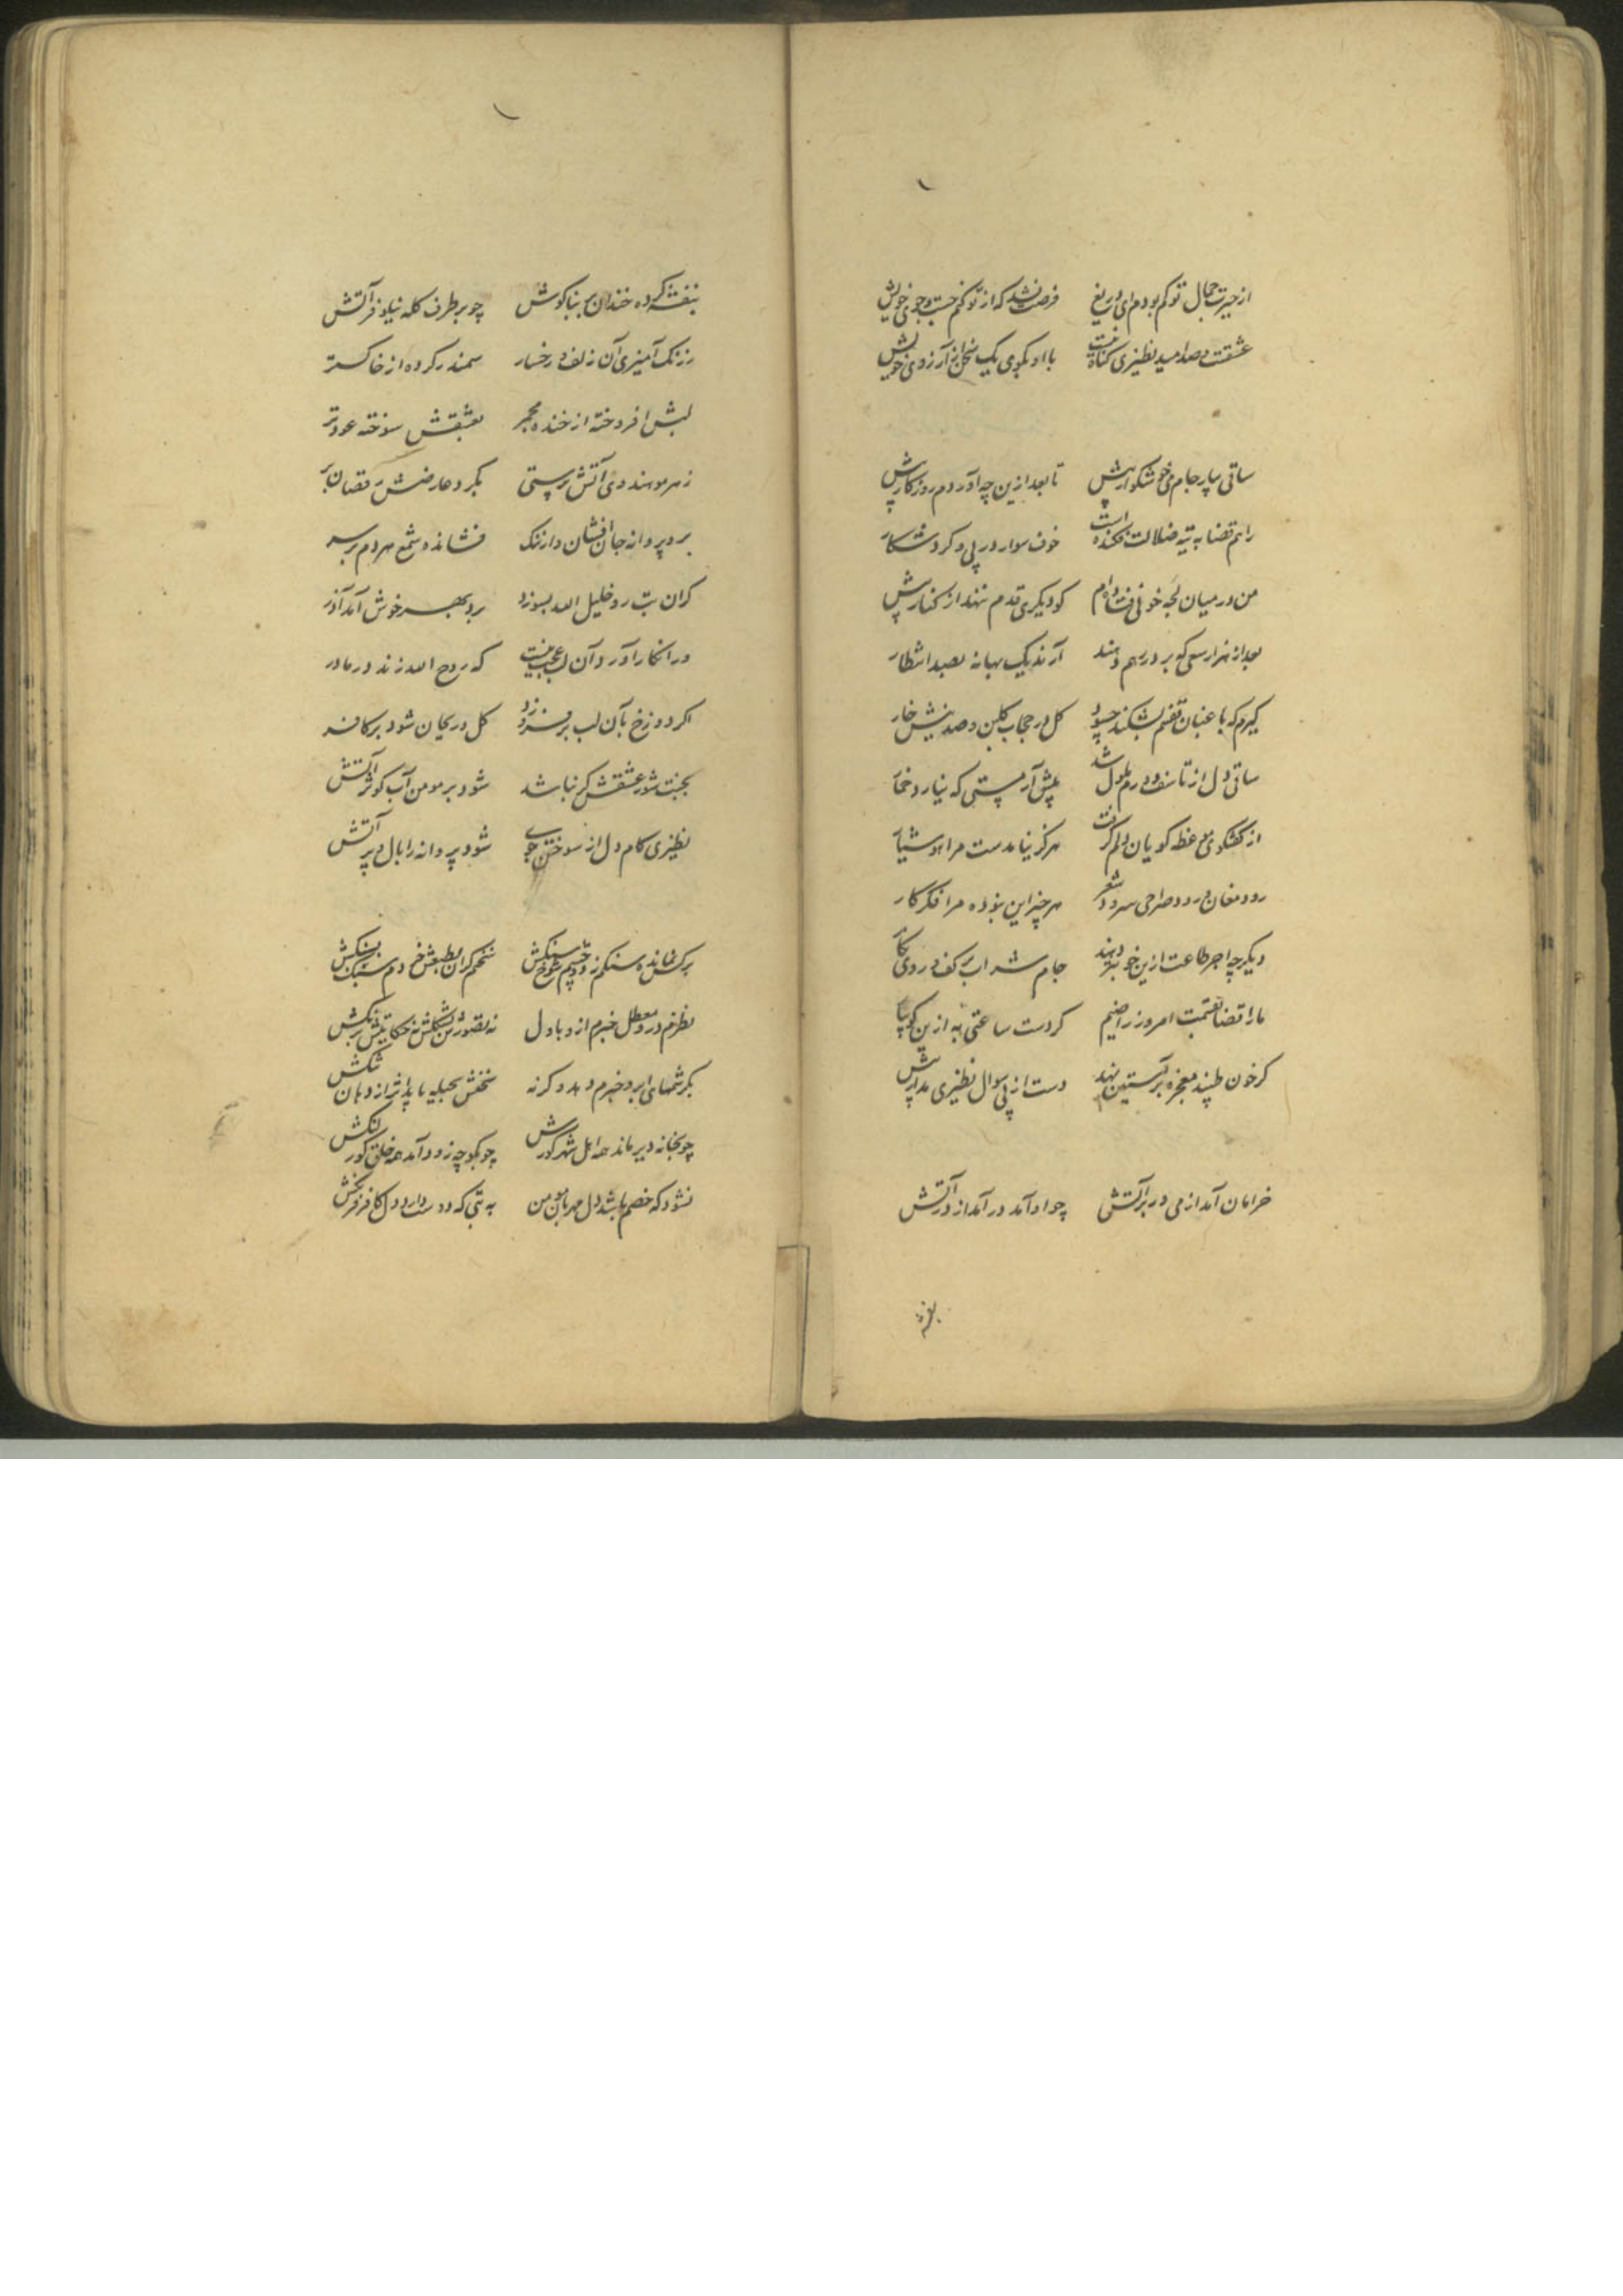 از حیرت جمال تو کم بوده‌ام ای دریغ فرصت نشد که از تو کنم جست و جوی خویش
عشقت و صد امید نظیری کناه نیست با او بکوی یک سخن از آرزوی خویش
ساقی بیار جام می خوشکوار پیش تا بعد ازین چه آوردم روزکار پیش
راهم قضا به تیه ضلالت فکنده است خوف سوار در پی و کرد شکار
من در میان لجه خونی فتاده‌ام کو دیکری قدم ننهد از کنار پیش
بعد از هزار سعی که بر در رهم دهند آرند یک بهانه بصد انتظار
کیرم که باغبان قفسم بشکند چسود کل در حجاب کلبن و صد نیش خار
ساقی دل از تاسف دورم ملول شد پیش آر مستی که نیارد خمار
از کفتکوی موعظه کویان دلم کرفت هرکز نیامدست مرا هوشیار
رود مغان و رود صراحی سرود و شعر هرچیز این بوده مرا فکر کار
دیکر چه اجر طاعت ازین خوبتر دهند جام شراب بر کف و روی نکار
ما را قضا بقسمت امروز راضیم کردست ساعتی به ازین کو بیا
کر خون طپید معجزه بر آستین نهد دست از پی سوال نظیری مدار پیش
خرامان آمد از می در بر آتش چو او آمد در آمد از در آتش
بنفشه
بنفشه کرده خندان بر بناکوش چو بر طرف کله نیلوفر آتش
ز رنک آمیزی آن زلف و رخسار سمندر کرده از خاکستر
لبش افروخته از خنده مجمر بعشقش سوخته عود تر
ز هر مو هندوی آتش پرستی بکرد عارضش رقصان بر
برد پروانه جان افشان و ارتنک فشانده شمع هر دم بر سر
کر آن بت رد خلیل الله بسوزد برد بهر خوش آمد آذر
ور انکار آورد آن لب عجب نیست که روح الله زند در مادر
اکر دوزخ بآن لب بر فروزد کل و ریحان شود بر کافر
بجنت شور عشقش کر نباشد شود بر مومن آب کوثر آتش
نظیری کام دل از سوختن جوی شود پروانه را بال و پر آتش
نظرم درو معطل خبرم ازو بادل
بکرشمهای ابرو خبرم دهد وکرنه سخنش بحیله یابد اثر از دهان تنکش
چو بخانه دیر ماند همه اهل شهر کورش چو بکوچه زود آمد همه خلق کور لنکش
نشود که خصم باشد دل مهربان من به بتی که دوست دارد دل کافر فرنکش